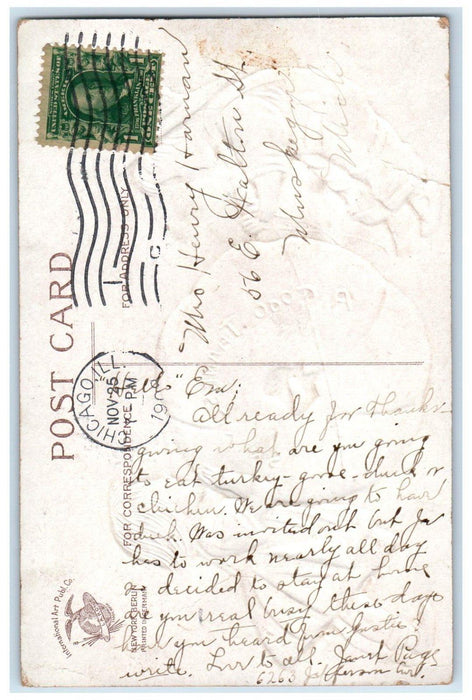 POST CARD
FOR ADDRESS ONLY
FOR CORRESPONDENCE
CHICAGO, ILL.
NOV 25
PM
190
Mrs Henry Harnau
56 E. Walton St.
Muskegon
Mich.
"Em:
All ready for Thanks-
giving what are you going
to eat turkey-goose-duck or
chicken. We are going to have
duck. Was invited out but Ja
has to work nearly all day
so decided to stay at home
you real busy these days
have you heard from Justie.
write. Love to all. Page
6263 Jefferson Ave.
International Art Publ. Co.
NEW YORK BERLIN
PRINTED IN GERMANY